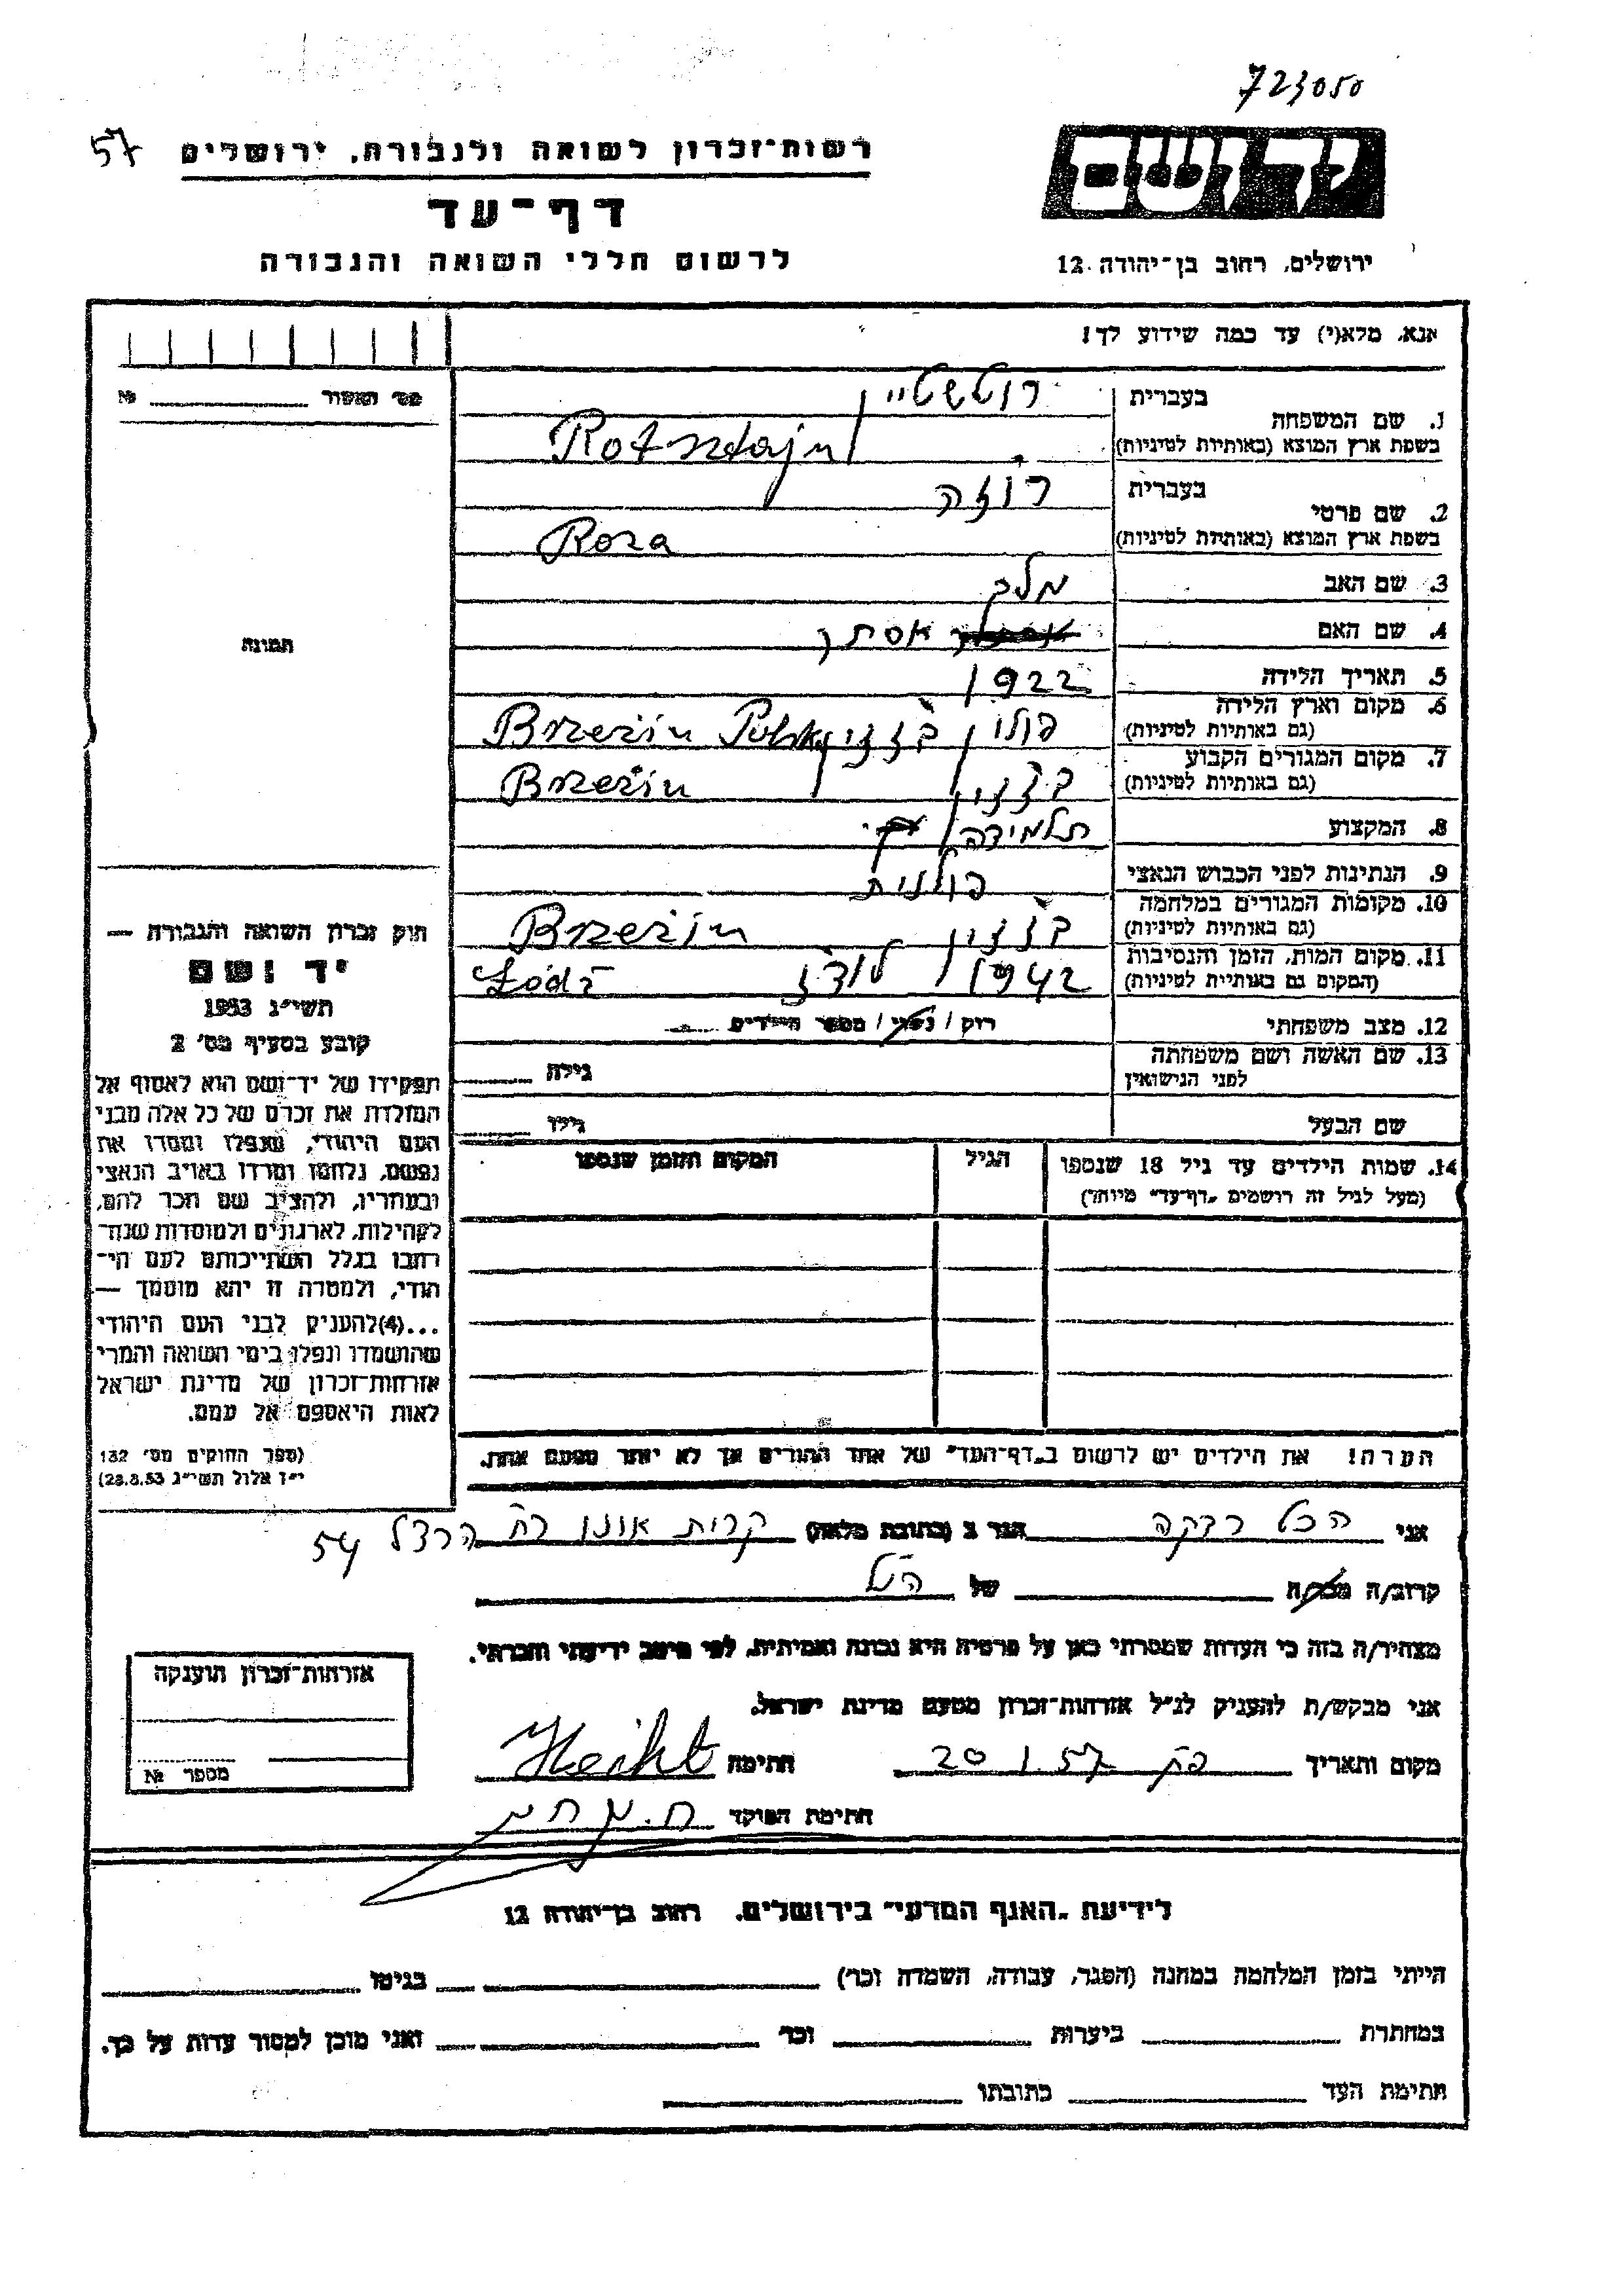 723050
57
רשות־זכרון לשואה ולגבורה, ירושלים
דף־עד
לרשום חללי השואה והגבורה
יד ושם
ירושלים, רחוב בן־יהודה 12
אנא, מלא(י) עד כמה שידוע לך!
מס׳ האשור №
1. שם המשפחה
בעברית רוטשטיין
בשפת ארץ המוצא (באותיות לטיניות) Rotsztajn
2. שם פרטי
בעברית רוזה
בשפת ארץ המוצא (באותיות לטיניות) Roza
3. שם האב מלך
4. שם האם אסתר
5. תאריך הלידה 1922
6. מקום וארץ הלידה
(גם באותיות לטיניות) פולין בז׳ז׳ין Brzezin Polska
7. מקום המגורים הקבוע
(גם באותיות לטיניות) בז׳ז׳ין Brzezin
8. המקצוע תלמידה
9. הנתינות לפני הכבוש הנאצי פולנית
10. מקומות המגורים במלחמה
(גם באותיות לטיניות) בז׳ז׳ין Brzezin
11. מקום המות, הזמן והנסיבות
(המקום גם באותיות לטיניות) 1942 לודז Łódź
12. מצב משפחתי רוק / נשוי / מספר הילדים
13. שם האשה ושם משפחתה
לפני הנישואין גילה
שם הבעל גילו
14. שמות הילדים עד גיל 18 שנספו
(מעל לגיל זה רושמים „דף־עד" מיוחד)
הגיל
המקום והזמן שנספו
הערה! את הילדים יש לרשום ב„דף־העד" של אחד ההורים אך לא יותר מפעם אחת.
תמונה
חוק זכרון השואה והגבורה —
יד ושם
תשי״ג 1953
קובע בסעיף מס׳ 2
תפקידו של יד־ושם הוא לאסוף אל
המולדת את זכרם של כל אלה מבני
העם היהודי, שנפלו ומסרו את
נפשם, נלחמו ומרדו באויב הנאצי
ובעוזריו, ולהציב שם וזכר להם,
לקהילות, לארגונים ולמוסדות שנח־
רבו בגלל השתייכותם לעם הי־
הודי, ולמטרה זו יהא מוסמך —
...(4)להעניק לבני העם היהודי
שהושמדו ונפלו בימי השואה והמרי
אזרחות־זכרון של מדינת ישראל
לאות היאספם אל עמם.
(ספר החוקים מס׳ 132
י״ז אלול תשי״ג 28.8.53)
אני הכט רבקה הגר ב (כתובת מלאה) קרית אונו רח הרצל 54
קרוב/ה מכר/ה של הנ״ל
מצהיר/ה בזה כי העדות שמסרתי כאן על פרטיה היא נכונה ואמיתית, לפי מיטב ידיעתי והכרתי.
אני מבקש/ת להעניק לנ״ל אזרחות־זכרון מטעם מדינת ישראל.
מקום ותאריך 20.1.57 חתימה Heiht
חתימת הפוקד
אזרחות־זכרון הוענקה
מספר №
לידיעת „האגף המדעי" בירושלים, רחוב בן־יהודה 12
הייתי בזמן המלחמה במחנה (הסגר, עבודה, השמדה וכר׳) בגיטו
במחתרת ביערות וכר׳ ואני מוכן למסור עדות על כך.
חתימת העד כתובתו